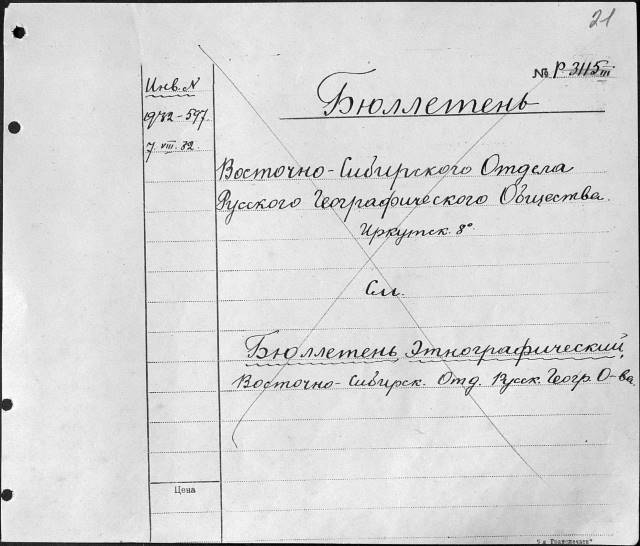 21
№ Р 3115 III
Инв. N
19/32-597
7. VIII. 32.
Бюллетень
Восточно-Сибирского Отдела
Русского Географического Общества.
Иркутск. 8°.
См.
Бюллетень Этнографический,
Восточно-Сибирск. Отд. Русск. Геогр. О-ва
Цена